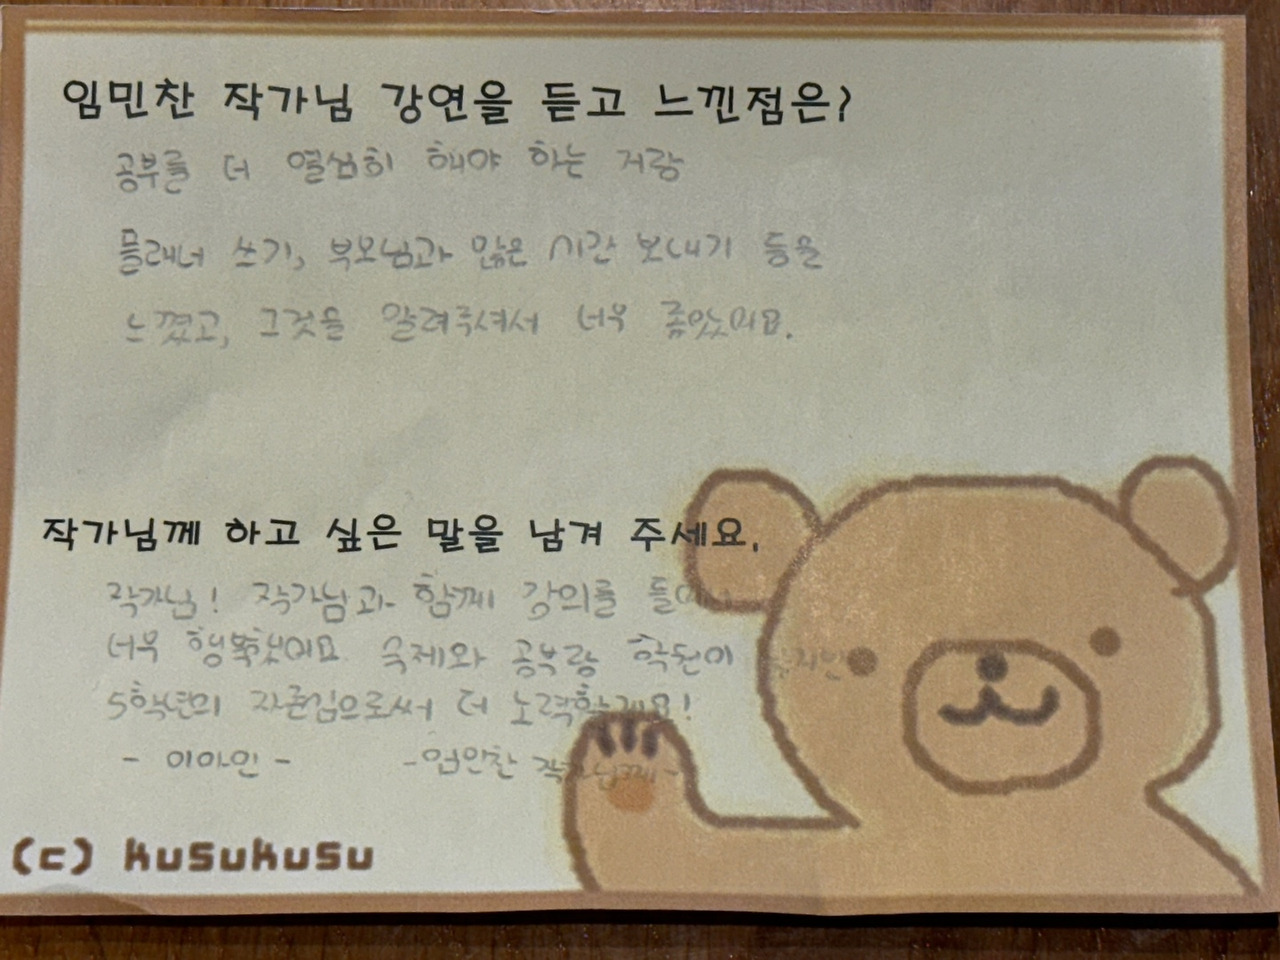 임민찬 작가님 강연을 듣고 느낀점은?
공부를 더 열심히 해야 하는 거랑
플래너 쓰기, 부모님과 많은 시간 보내기 등을
느꼈고, 그것을 알려주셔서 너무 좋았어요.
작가님께 하고 싶은 말을 남겨 주세요.
작가님! 작가님과 함께 강의를
너무 행복했어요 숙제와 공부랑 학원이
5학년의 자존심으로써 더 노력할게요!
- 이아인 - - 임민찬 작가님께 -
(c) kusukusu